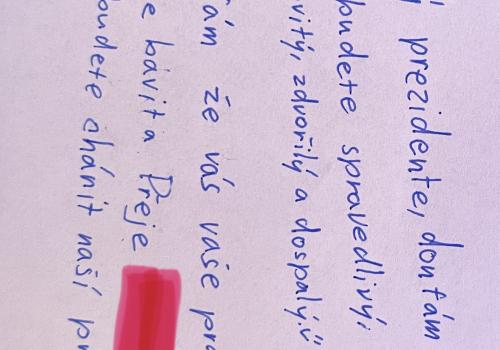 prezidente, doufám
budete spravedlivý,
vitý, zdvořilý a dospalý.
že vás vaše
bávit a Přeje
budete chánit naší